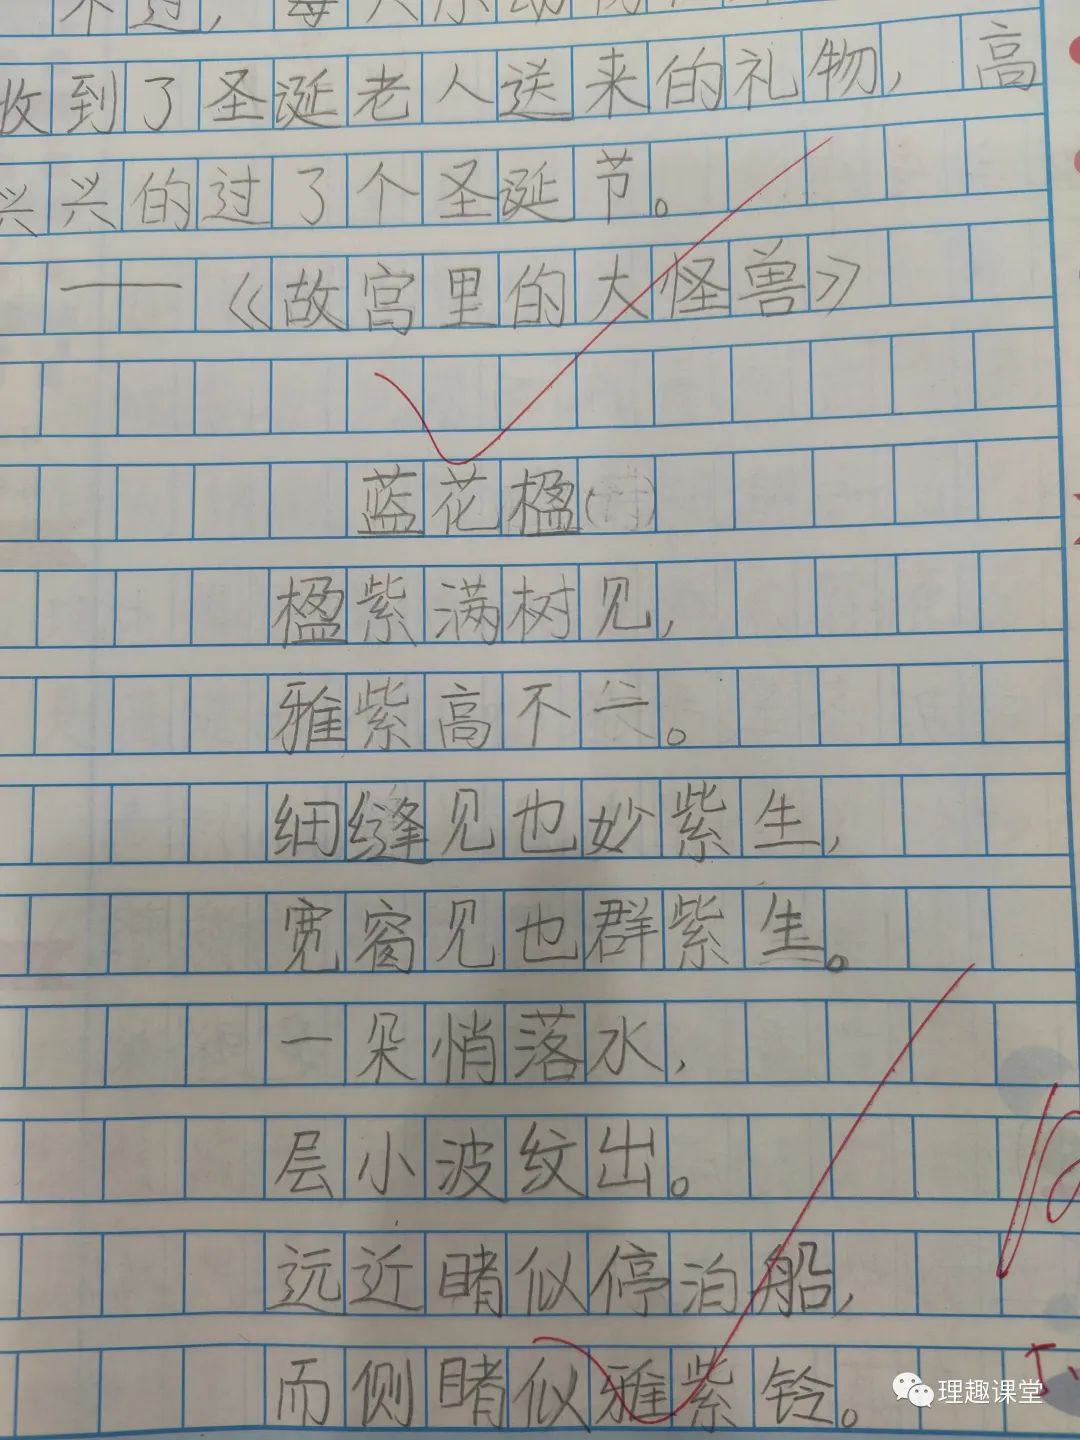 不过，每
收到了圣诞老人送来的礼物，高
兴兴的过了个圣诞节。
——《故宫里的大怪兽》
蓝花楹(诗)
楹紫满树见，
雅紫高不尖。
细缝见也妙紫生，
宽窗见也群紫生。
一朵悄落水，
层小波纹出。
远近睹似停泊船，
而侧睹似雅紫铃。
理趣课堂